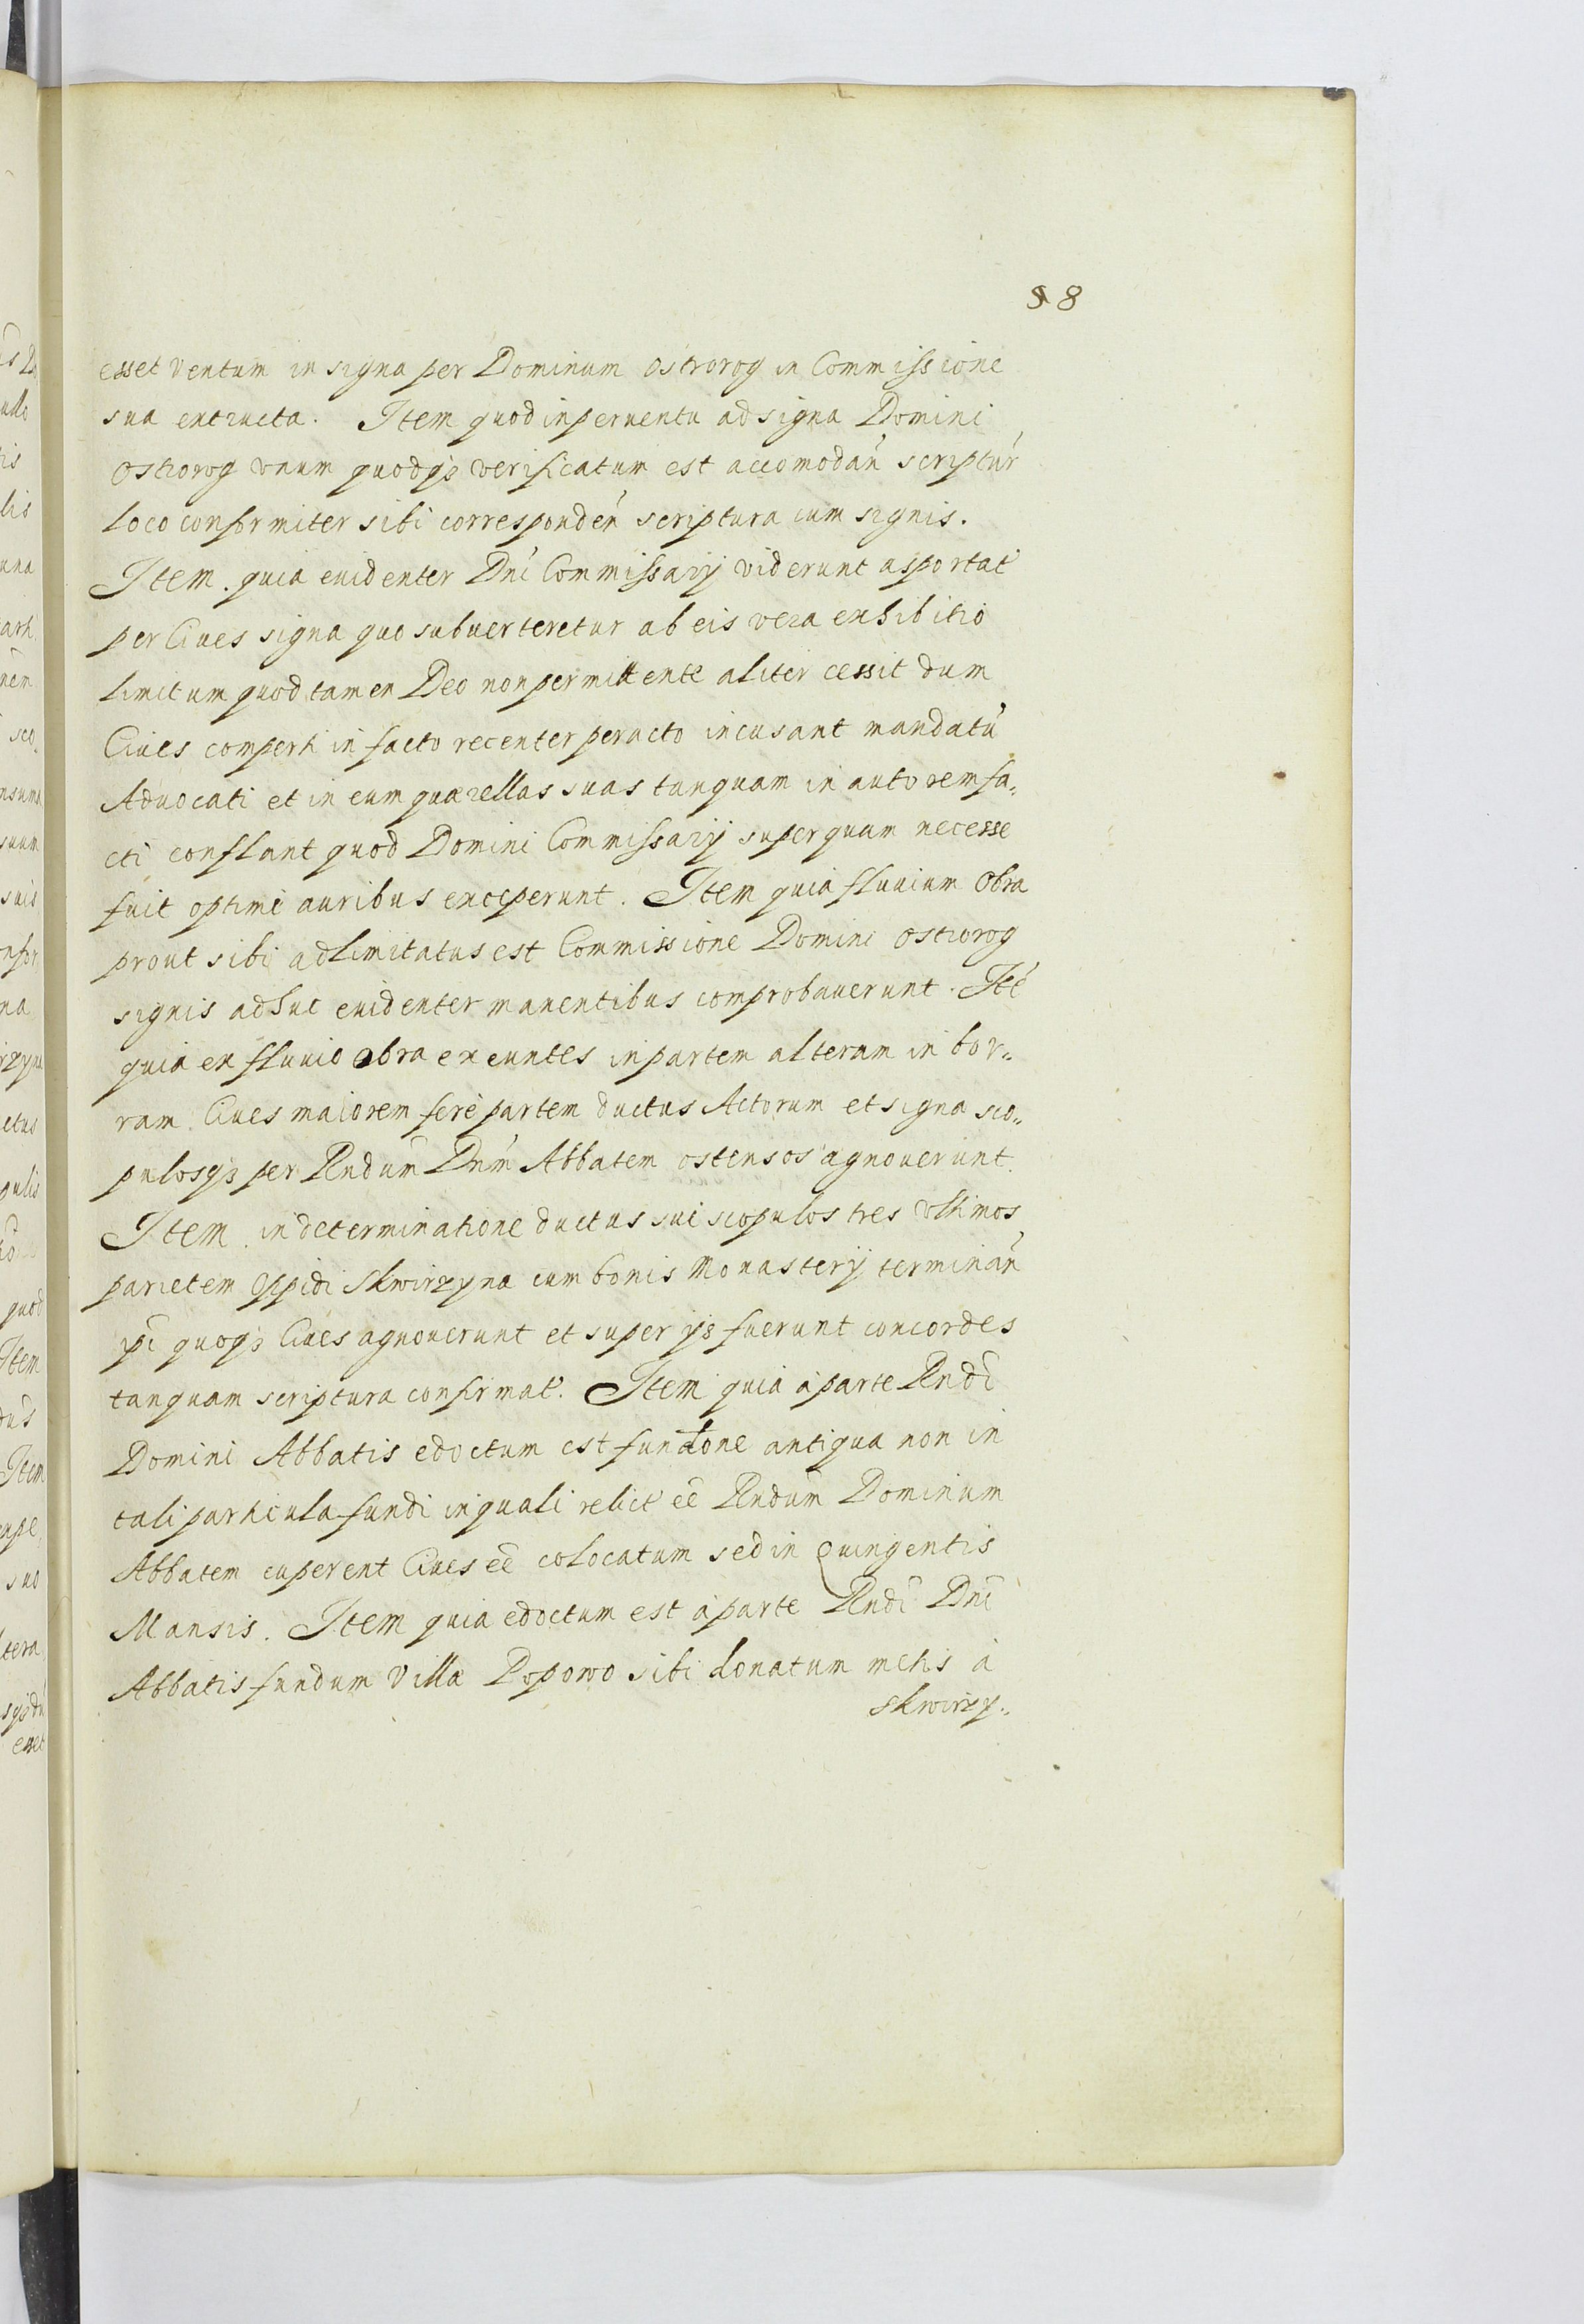 58
esset ventum in signa per Dominum Ostrorog in Commissione
sua extructa. Item quod in perventu ad signa Domini
Ostrorog vnum quodqз verificatum est accomodań scriptur̃
loco conformiter sibi correspondeń scriptura cum signis.
Item. quia euidenter Dni Commissarij viderunt asportat̃
per Ciues signa quo subuerteretur ab eis vera exhibitio
limitum quod tamen Deo non permittente aliter cessit dum
Ciues comperti in facto recenter peracto incusant mandatũ
Aduocati et in eum quærellas suas tanquam in autorem fa„
cti conflant quod Domini Commissarij super quam necesse
fuit optime auribus exceperunt. Item quia fluuium Obra
prout sibi adlimitatus est Commissione Domini Ostrorog
signis adhuc euidenter manentibus comprobauerunt. Itẽ
quia ex fluuio Obra exeuntes in partem alteram in bor„
ram Ciues maiorem ferè partem ductus Actorum et signa sco„
pulosqз per Rndum Dnm Abbatem ostensos agnouerunt.
Item in determinatione ductus sui scopulos tres vltimos
parietem Oppidi Skwirzyna cum bonis Monasterij terminań
ipi quoqз Ciues agnouerunt et super ijs fuerunt concordes
tanquam scriptura confirmat̃. Item quia à parte Rndi
Domini Abbatis edoctum est fundtone antiqua non in
tali particula fundi in quali relict̃ eẽ Rndum Dominum
Abbatem cuperent Ciues eẽ colocatum sed in Quingentis
Mansis. Item quia edoctum est à parte Rndi Dni
Abbatis fundum Villæ Popowo sibi donatum metis à
Skwirzy„